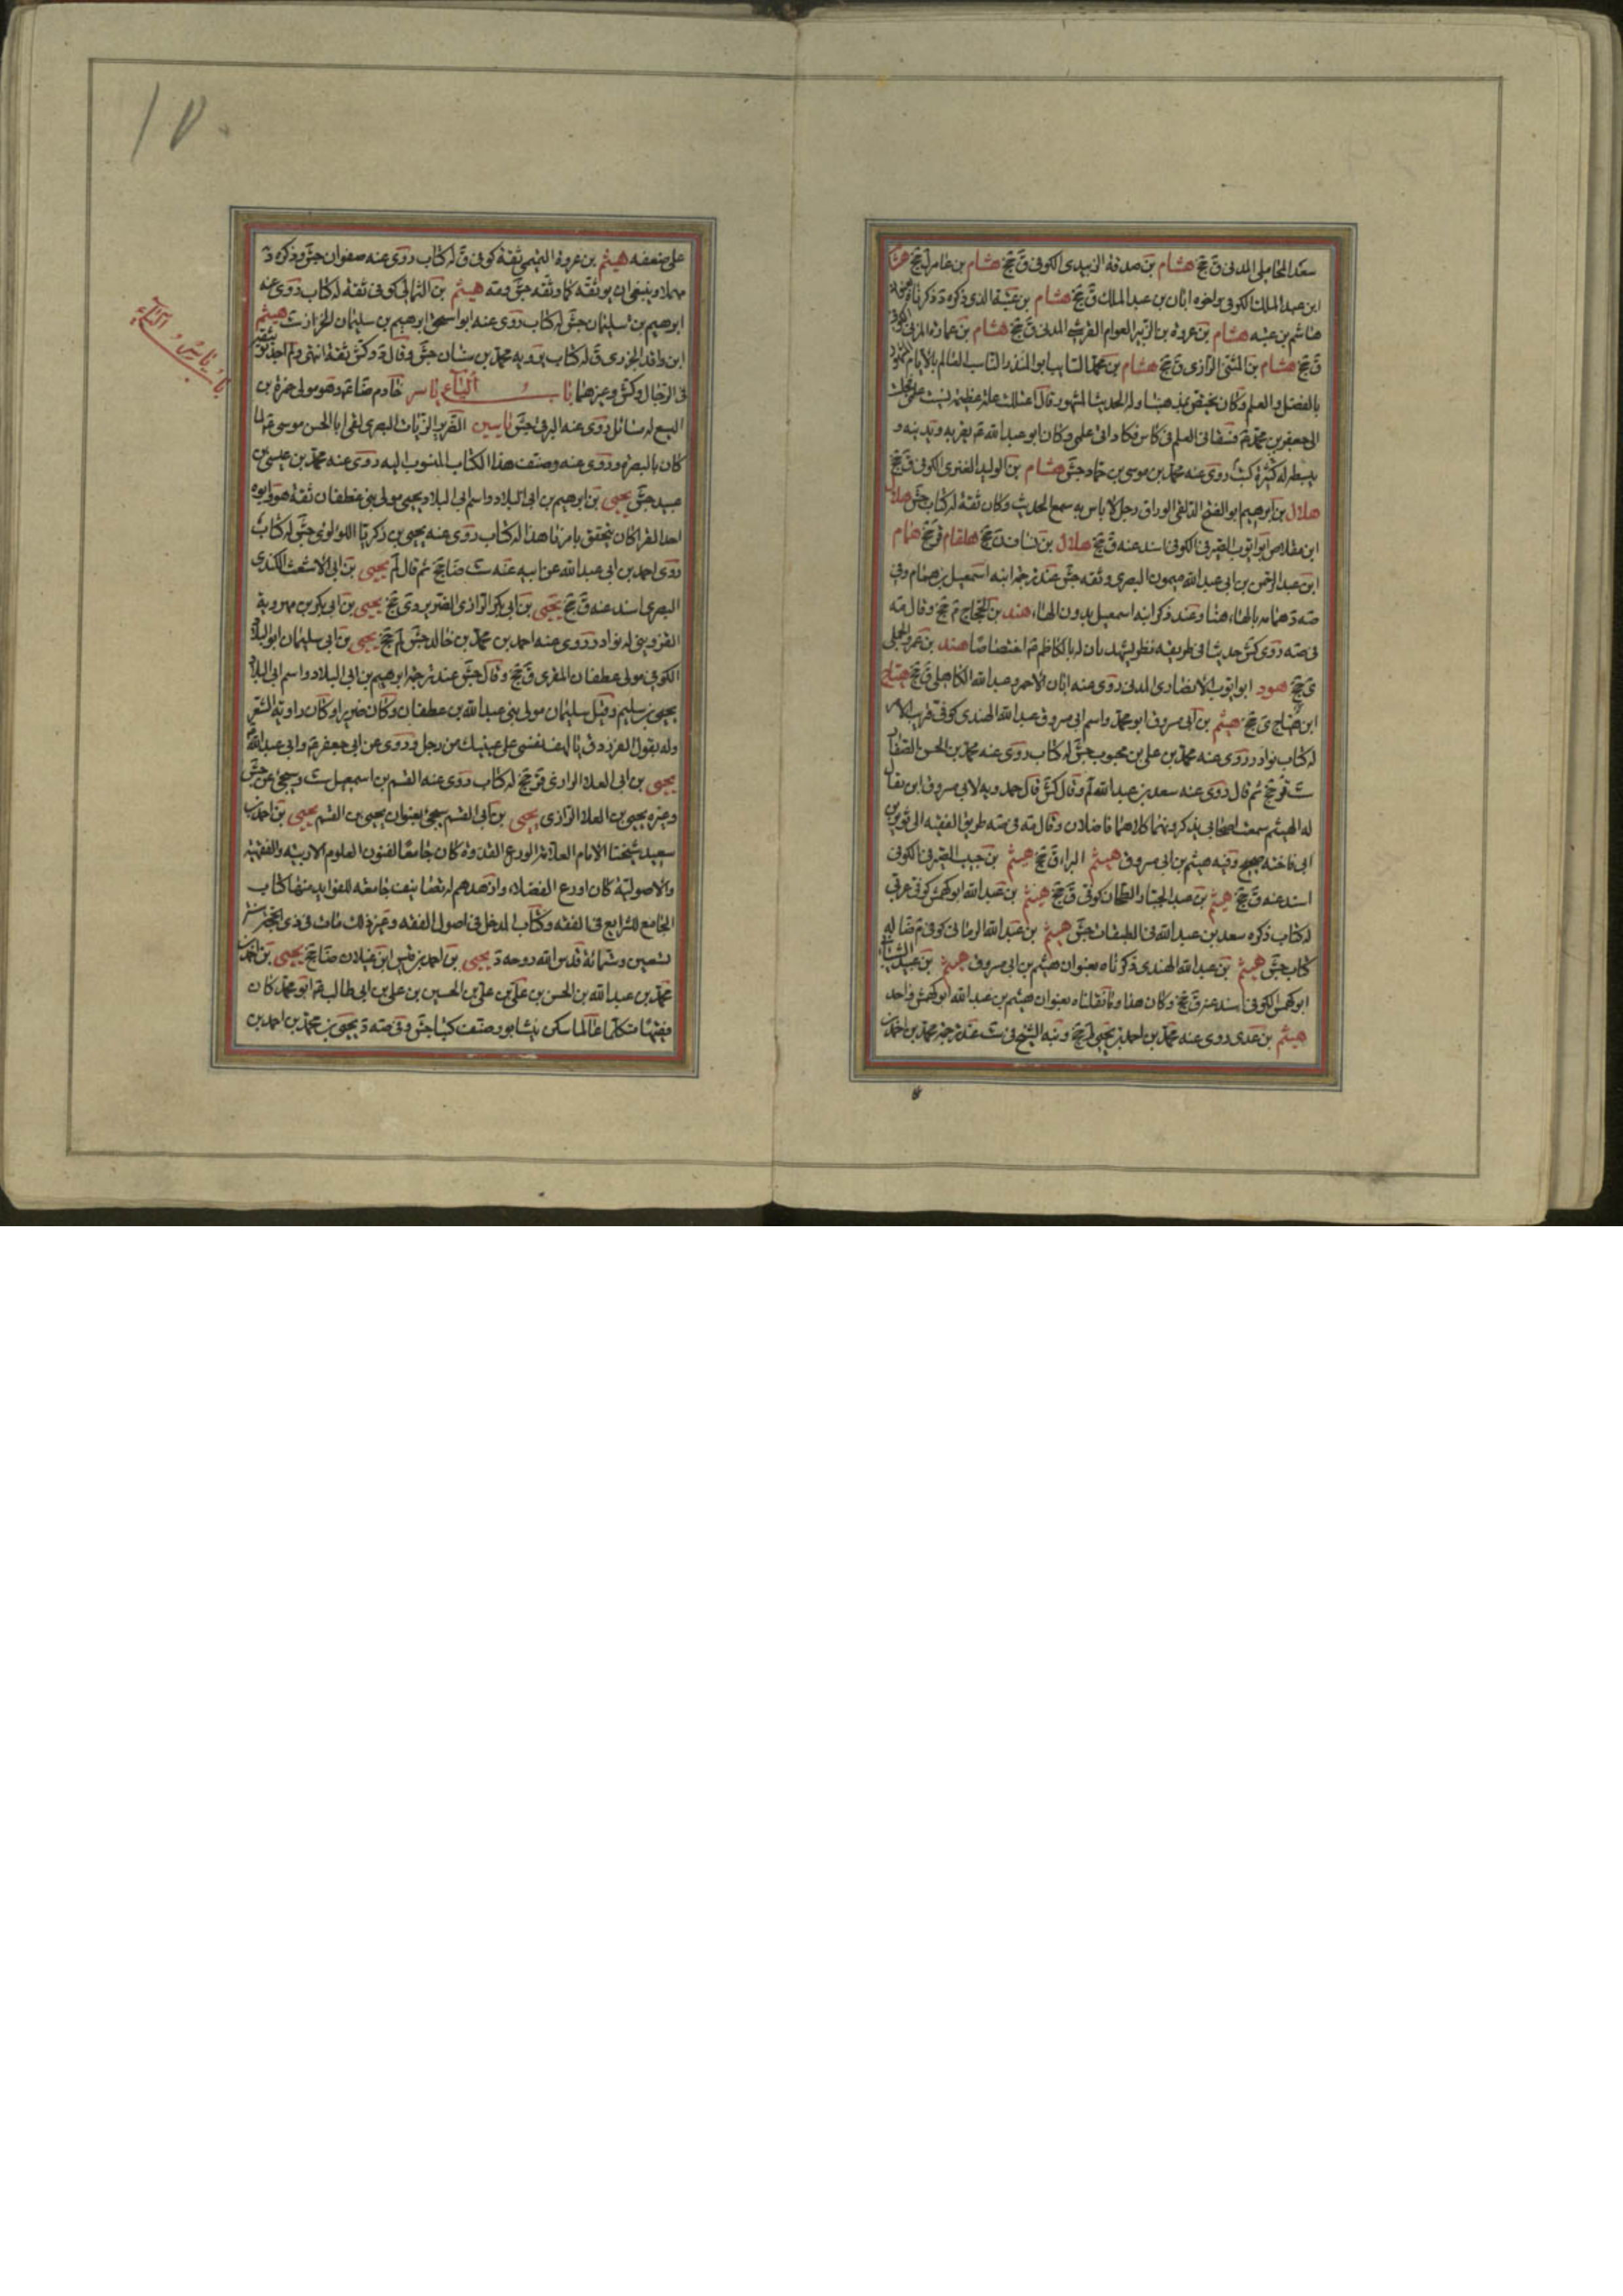 سعد المحاملي المدني ق جخ هشام بن صدقة الزبيدي الكوفي ق جخ هشام بن عامر ل جخ هشام
ابن عبد الملك الكوفي واخوه ابان بن عبد الملك ق جخ هشام بن عتبة الذي ذكره د ذكرناه
هاشم بن عتبه هشام بن عروة بن الزبير العوام القرشي المدني ق جخ هشام بن عمارة المزني الكوفي
ق جخ هشام بن المثنى الرازي ق جخ هشام بن محمد السايب ابو المنذر الناسب العالم بالايام المشهور
بالفضل والعلم وكان يختص بمذهبنا وله الحديث المشهور قال اعتللت علة عظيمة نسيت علمي فجلست
الى جعفر بن محمد ع فسقاني العلم في كاس فعاد الي علمي وكان ابو عبد الله ع يقربه ويدنيه و
يبسطه له كثيرة كتب روى عنه محمد بن موسى بن حماد جش هشام بن الوليد الكوفي ق جخ
هلال بن ابرهيم ابو الفتح الدلفي الوراق رجل لا باس به سمع الحديث وكان ثقة له كتاب جش هلال
ابن مقلاص ابو ايوب الصيرفي الكوفي اسند عنه ق جخ هلال بن جخ هلقام ق جخ همام
ابن عبد الرحمن بن ابي عبد الله ميمون البصري وثقه جش عند ترجمة ابنه اسمعيل بن همام وفي
صه د همام بالهاء هنا وعند ذكر ابنه اسمعيل بدون الهاء هند بن الحجاج م جخ وقال مته
في صه روى كش حديثا في طريقه نظر يشهد بان له بالكاظم ع اختصاصا هند بن عمرو الجملي
ي جخ هود ابو ايوب الانصاري المدني روى عنه ابان الاحمر وعبد الله الكاهلي ق جخ هياج
ابن هياج ي جخ هيثم بن ابي مسروق ابو محمد واسم ابي مسروق عبد الله النهدي كوفي قريب الامر
له كتاب نوادر روى عنه محمد بن علي بن محبوب جش له كتاب روى عنه محمد بن الحسن الصفار
ست قر جخ ثم قال روى عنه سعد بن عبد الله لم وقال كش قال حمدويه لابي مسروق ابن يقال
له الهيثم سمعت اصحابي يذكرونهما كلاهما فاضلان وقال مته في صه طريق الفقيه الى ثوير بن
ابي فاختة صحيح وفيه هيثم بن ابي مسروق هيثم البراء ق جخ هيثم بن حبيب الصيرفي الكوفي
اسند عنه ق جخ هيثم بن عبد الجبار الطحان كوفي ق جخ هيثم بن عبد الله ابو كهمش كوفي عربي
له كتاب ذكره سعد بن عبد الله في الطبقات جش هيثم بن عبد الله الرماني كوفي م ضا له
كتاب جش هيثم بن عبد الله النهدي ذكرناه بعنوان هيثم بن ابي مسروق هيثم بن عبيد الشيباني
ابو كهمس الكوفي اسند عنه ق جخ وكان هذا وما نقلناه بعنوان هيثم بن عبد الله ابو كهمش واحد
هيثم بن عدي روى عنه محمد بن احمد بن يحيى لم جخ ونبه الشيخ في ست عند ترجمة محمد بن احمد بن
١٥٠
على ضعفه هيثم بن عروة التيمي ثقة كوفي ق له كتاب روى عنه صفوان جش وذكره د
مهملا وينبغي ان يوثقه كما وثقه جش وصه هيثم بن الثمالي كوفي ثقة له كتاب روى عنه
ابرهيم بن سليمان جش له كتاب روى عنه ابو اسحق ابرهيم بن سليمان الخزاز ست هيثم
ابن واقد الجزري ق له كتاب يرويه محمد بن سنان جش وقال د وكش ثقة انتهى ولم اجد توثيقه
في الرجال وكش وغيرهما باب الياء ياسر خادم ضا ع وهو مولى حمزة بن
اليسع له مسائل روى عنه البرقي جش ياسين الضرير الزيات البصري لقي ابا الحسن موسى ع لما
كان بالبصرة وروى عنه وصنف هذا الكتاب المنسوب اليه روى عنه محمد بن عيسى بن
عبيد جش يحيى بن ابرهيم بن ابي البلاد واسم ابي البلاد يحيى مولى بني غطفان ثقة هو وابوه
احد القراء كان يتحقق بامرنا هذا له كتاب روى عنه يحيى بن زكريا اللولوي جش له كتاب
روى احمد بن ابي عبد الله عن ابيه عنه ست ضا جخ ثم قال لم يحيى بن ابي الاشعث الكندي
البصري اسند عنه ق جخ يحيى بن ابي بكر الرازي الضرير دي جخ يحيى بن ابي بكر بن مهرويه
القزويني له نوادر روى عنه احمد بن محمد بن خالد جش لم جخ يحيى بن ابي سليمان ابو البلاد
الكوفي مولى غطفان المقري ق جخ وقال جش عند ترجمة ابرهيم بن ابي البلاد واسم ابي البلاد
يحيى بن سليم وقيل سليمان مولى بني عبد الله بن غطفان وكان ضريرا وكان راوية الشعر
وله يقول الفرزدق يا لهف نفسي على عينيك من رجل وروى عن ابي جعفر ع وابي عبد الله ع
يحيى بن ابي العلاء الرازي قر جخ له كتاب روى عنه القسم بن اسمعيل ست وسيجيء عن جش
وغيره يحيى بن العلاء الرازي يحيى بن ابي القسم سيجيء بعنوان يحيى بن القسم يحيى بن احمد بن
سعيد شيخنا الامام العلامة الورع القدوة كان جامعا لفنون العلوم الادبية والفقهية
والاصولية كان اورع الفضلاء وازهدهم له تصانيف جامعة للفوايد منها كتاب
الجامع للشرايع في الفقه وكتاب المدخل في اصول الفقه وغير ذلك مات في ذي الحجة سنة
تسعين وستمائة قدس الله روحه د يحيى بن احمد بن قيس ابن غيلان ضا جخ يحيى بن احمد بن
محمد بن عبد الله بن الحسن بن علي بن علي بن الحسين بن علي بن ابي طالب ع ابو محمد كان
فقيها متكلما عالما سكن نيشابور صنف كتبا جش وفي صه د يحيى بن محمد بن احمد بن